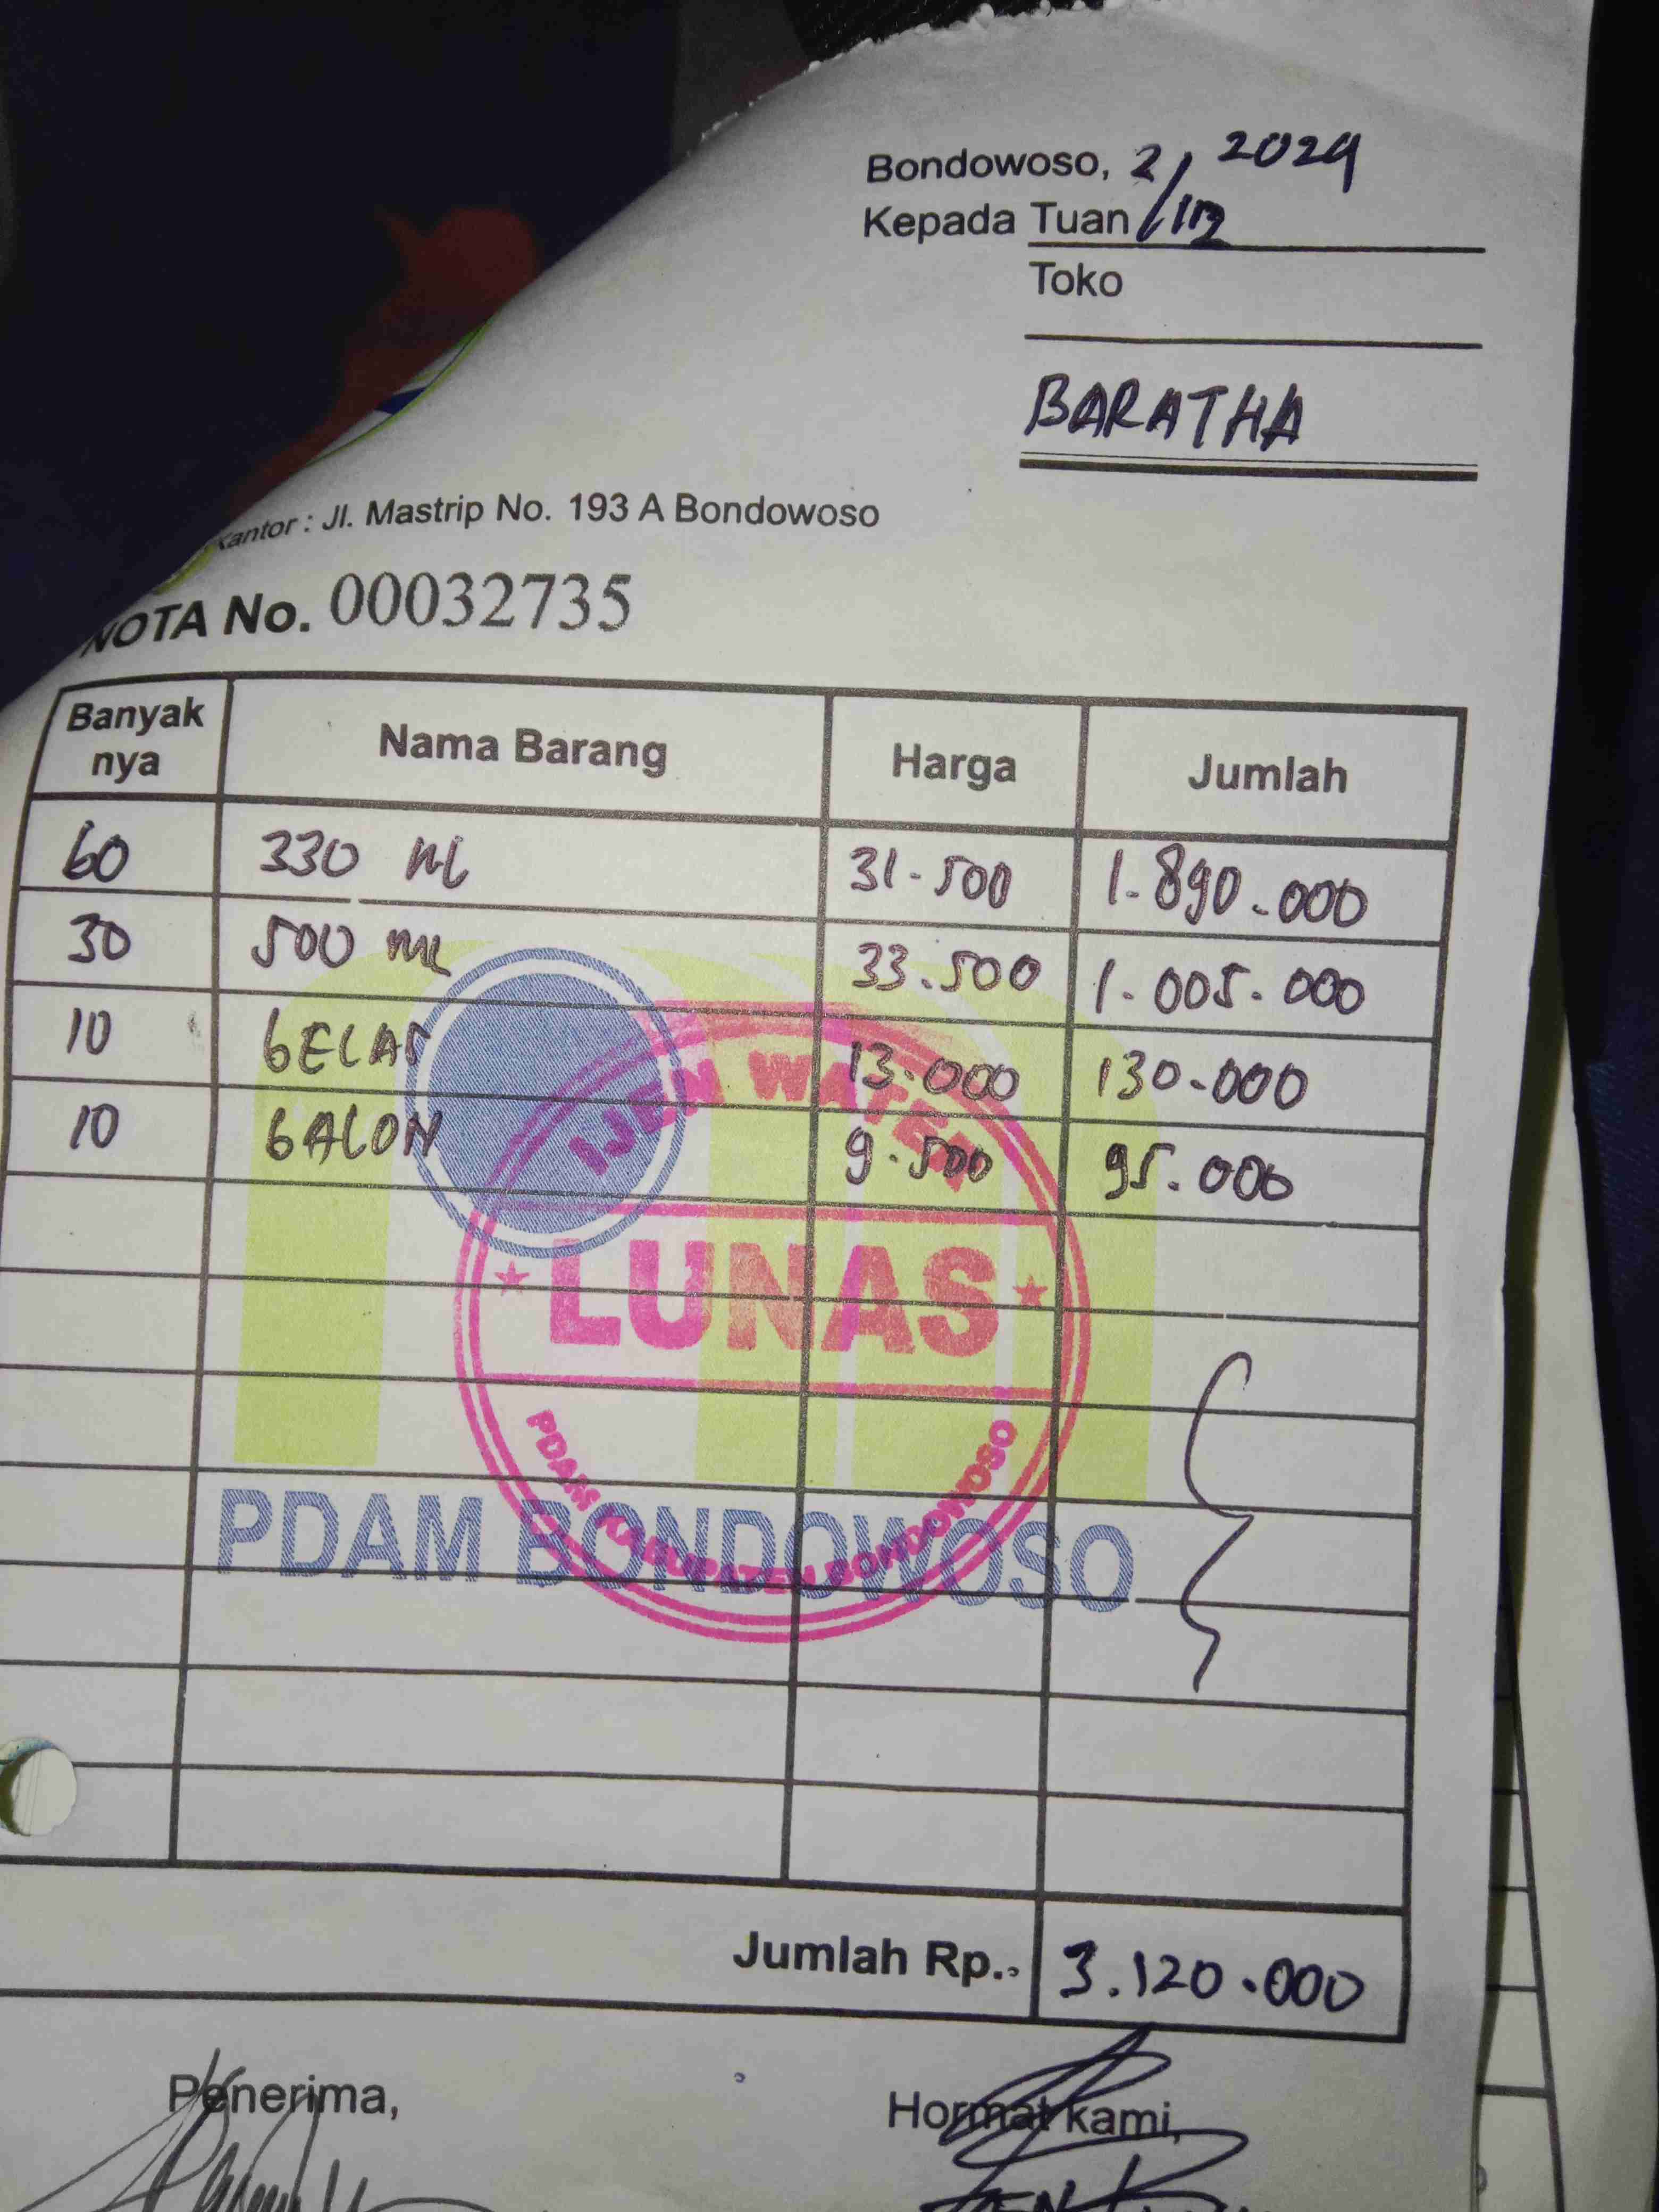 Bondowoso, 2/12 2024
Kepada Tuan
Toko
BARATHA
Kantor : Jl. Mastrip No. 193 A Bondowoso
NOTA No. 00032735
Banyak nya Nama Barang Harga Jumlah
60 330 ml 31.500 1.890.000
30 500 ml 33.500 1.005.000
10 GELAS 13.000 130.000
10 GALON 9.500 95.000
IJEN WATER
LUNAS
PDAM KABUPATEN BONDOWOSO
PDAM BONDOWOSO
Jumlah Rp.. 3.120.000
Penerima, Hormat kami,